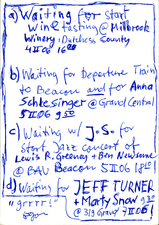 a) Waiting for start
wine tasting @ Millbrook
Winery, Dutchess County
4 II 06 16 00
b) Waiting for Departure Train
to Beacon and for Anna
Schlesinger @ Grand Central
5 II 06 9 50
c) Waiting w/ J.S. for
Start Jazz Concert of
Lewis R. Greenay + Ben Newsome
@ BAU Beacon 5 II 06
d) Waiting for JEFF TURNER
+ Marty Snow 9 50
"grrrr!" @ 319 Grand 7 II 06